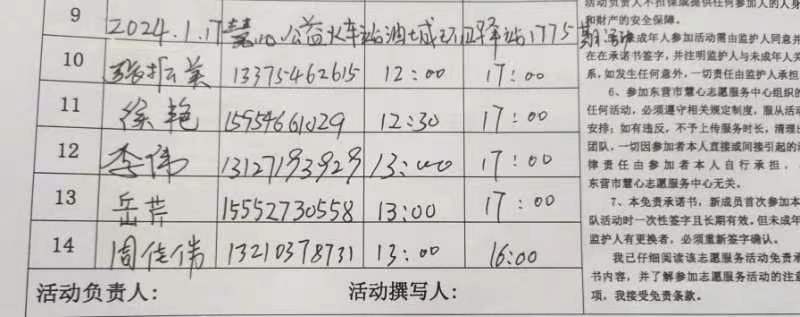 9 2024.1.17慧心公益火车站油城环卫驿站1775期活动
10 张振美 13375462615 12:00 17:00
11 徐艳 15954661029 12:30 17:00
12 李伟 13127193929 13:00 17:00
13 岳芹 15552730558 13:00 17:00
14 周佳伟 13210378731 13:00 16:00
活动负责人: 活动撰写人:
活动负责人不担保或提供任何参加人的人身
和财产的安全保障。
成年人参加活动需由监护人同意并
在在承诺书签字,并注明监护人与未成年人关
系,如发生任何意外,一切责任由监护人承担
6、参加东营市慧心志愿服务中心组织的
任何活动,必须遵守相关规定制度,服从活动
安排;如有违反,不予上传服务时长,清理出
团队,一切因参加者本人直接或间接引起的法
律责任由参加者本人自行承担,
东营市慧心志愿服务中心无关。
7、本免责承诺书,新成员首次参加本
队活动时一次性签字且长期有效。但未成年
监护人有更换者,必须重新签字确认。
我已仔细阅读该志愿服务活动免责承
书内容,并了解参加志愿服务活动的注意
项,我接受免责条款。